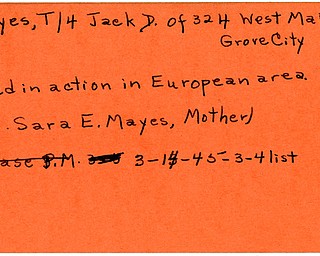 yes, T/4 Jack D. of 324 West Ma
Grove City
d in action in European area.
. Sara E. Mayes, Mother)
ase P.M. 3-14-45-3-4 list